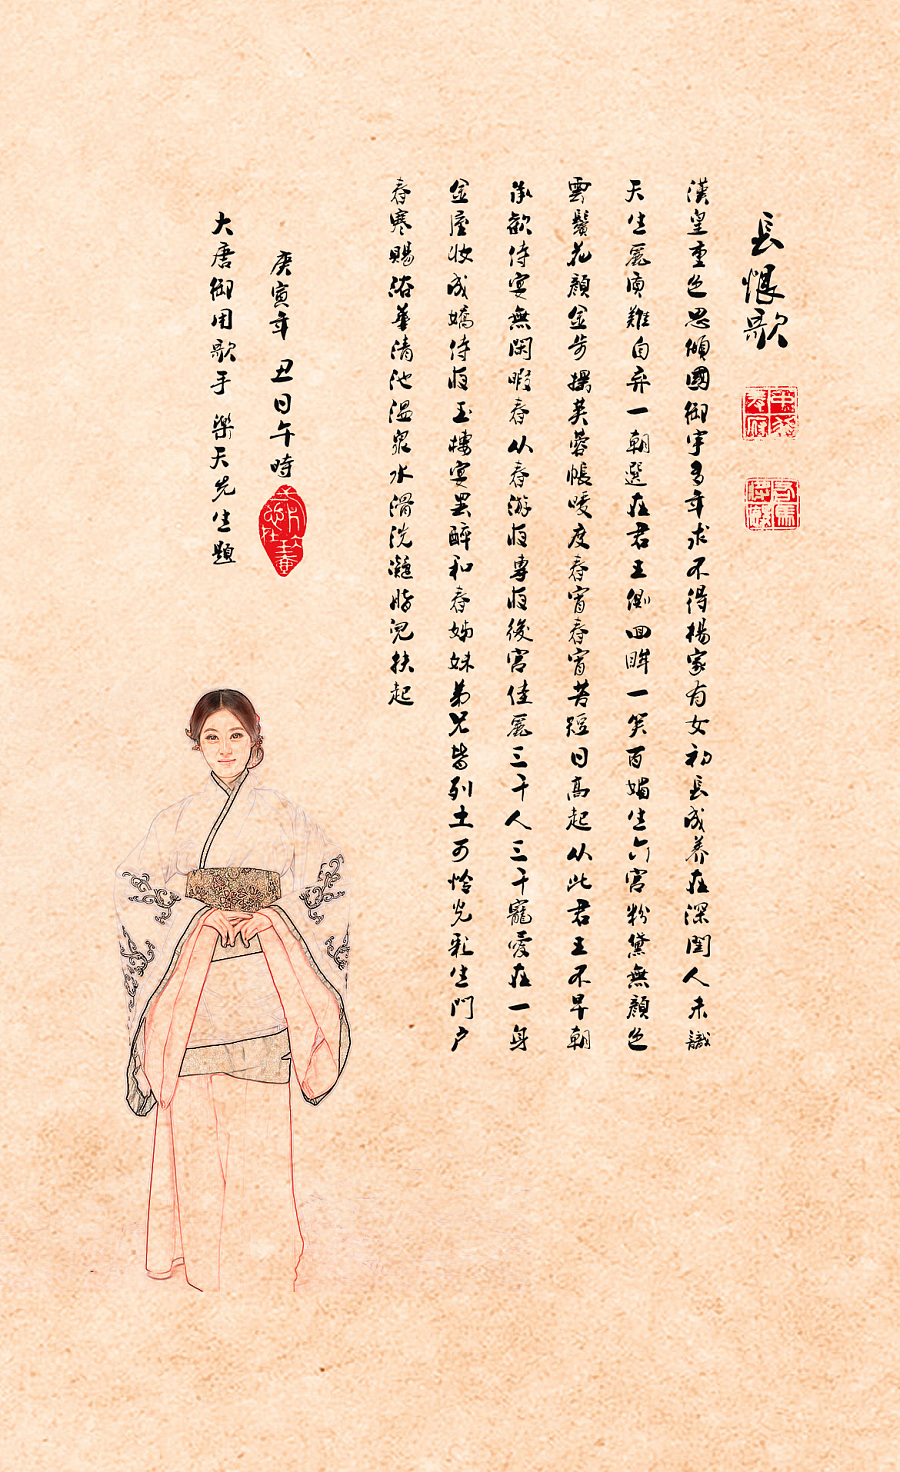 長恨歌
漢皇重色思傾國御宇多年求不得楊家有女初長成養在深閨人未識
天生麗質難自弃一朝選在君王側回眸一笑百媚生六宮粉黛無顏色
雲鬢花顏金步搖芙蓉帳暖度春宵春宵苦短日高起从此君王不早朝
承歡侍宴無閑暇春从春游夜專夜後宮佳麗三千人三千寵愛在一身
金屋妝成嬌侍夜玉樓宴罷醉和春姊妹弟兄皆列土可怜光彩生門戶
春寒賜浴華清池温泉水滑洗凝脂兒扶起
庚寅年 丑日午時
大唐御用歌手 樂天先生題